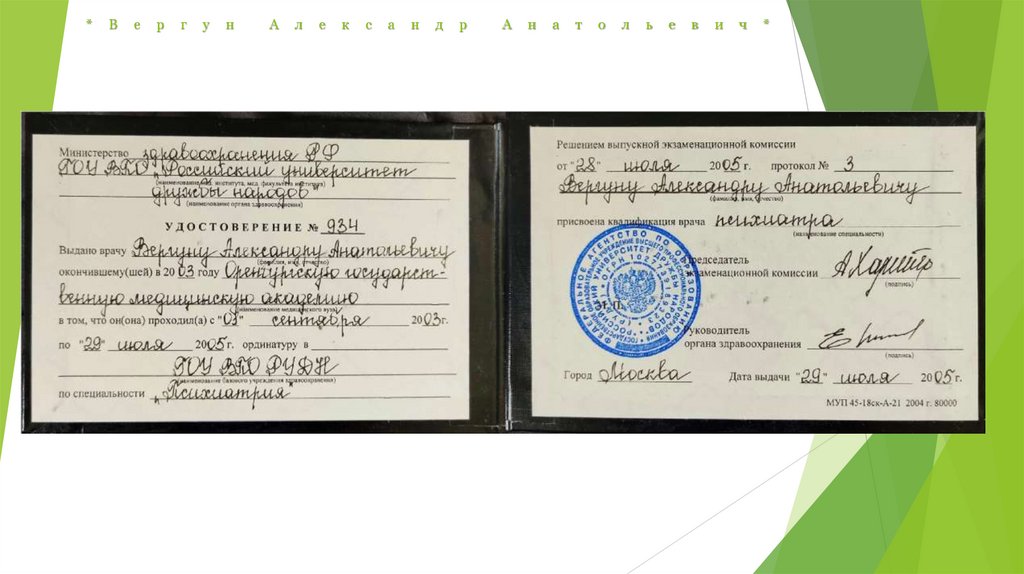 * Вергун Александр Анатольевич *
Министерство здравоохранения РФ
ГОУ ВПО „Российский университет
(наименование, института, мед. факультета института)
дружбы народов"
(наименование органа здравоохранения)
УДОСТОВЕРЕНИЕ № 934
Выдано врачу Вергуну Александру Анатольевичу
(фамилия, имя, отчество)
окончившему(шей) в 2003 году Оренбургскую государст-
венную медицинскую академию
(наименование медицинского вуза)
в том, что он(она) проходил(а) с "01" сентября 2003г.
по "29" июля 2005г. ординатуру в
ГОУ ВПО РУДН
(наименование базового учреждения здравоохранения)
по специальности „Психиатрия"
Решением выпускной экзаменационной комиссии
от "28" июля 2005 г. протокол № 3
Вергуну Александру Анатольевичу
(фамилия, имя, отчество)
присвоена квалификация врача психиатра
(наименование специальности)
Председатель
экзаменационной комиссии
(подпись)
М.П.
Руководитель
органа здравоохранения
(подпись)
Город Москва Дата выдачи "29" июля 2005 г.
МУП 45-18ск-А-21 2004 г. 80000